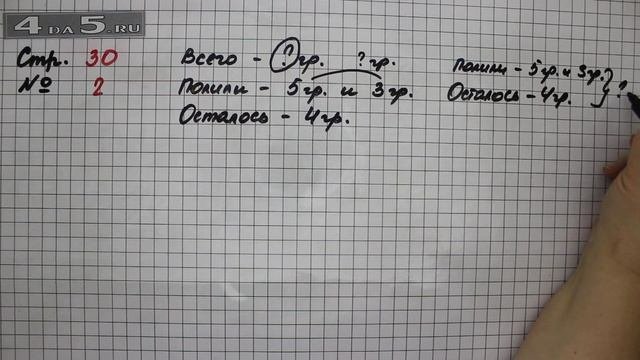 4DA5.RU
Стр. 30
№ 2
Всего - ? гр. ? гр.
Полили - 5 гр. и 3 гр.
Осталось - 4 гр.
Полили - 5 гр. и 3 гр.
Осталось - 4 гр. } ?